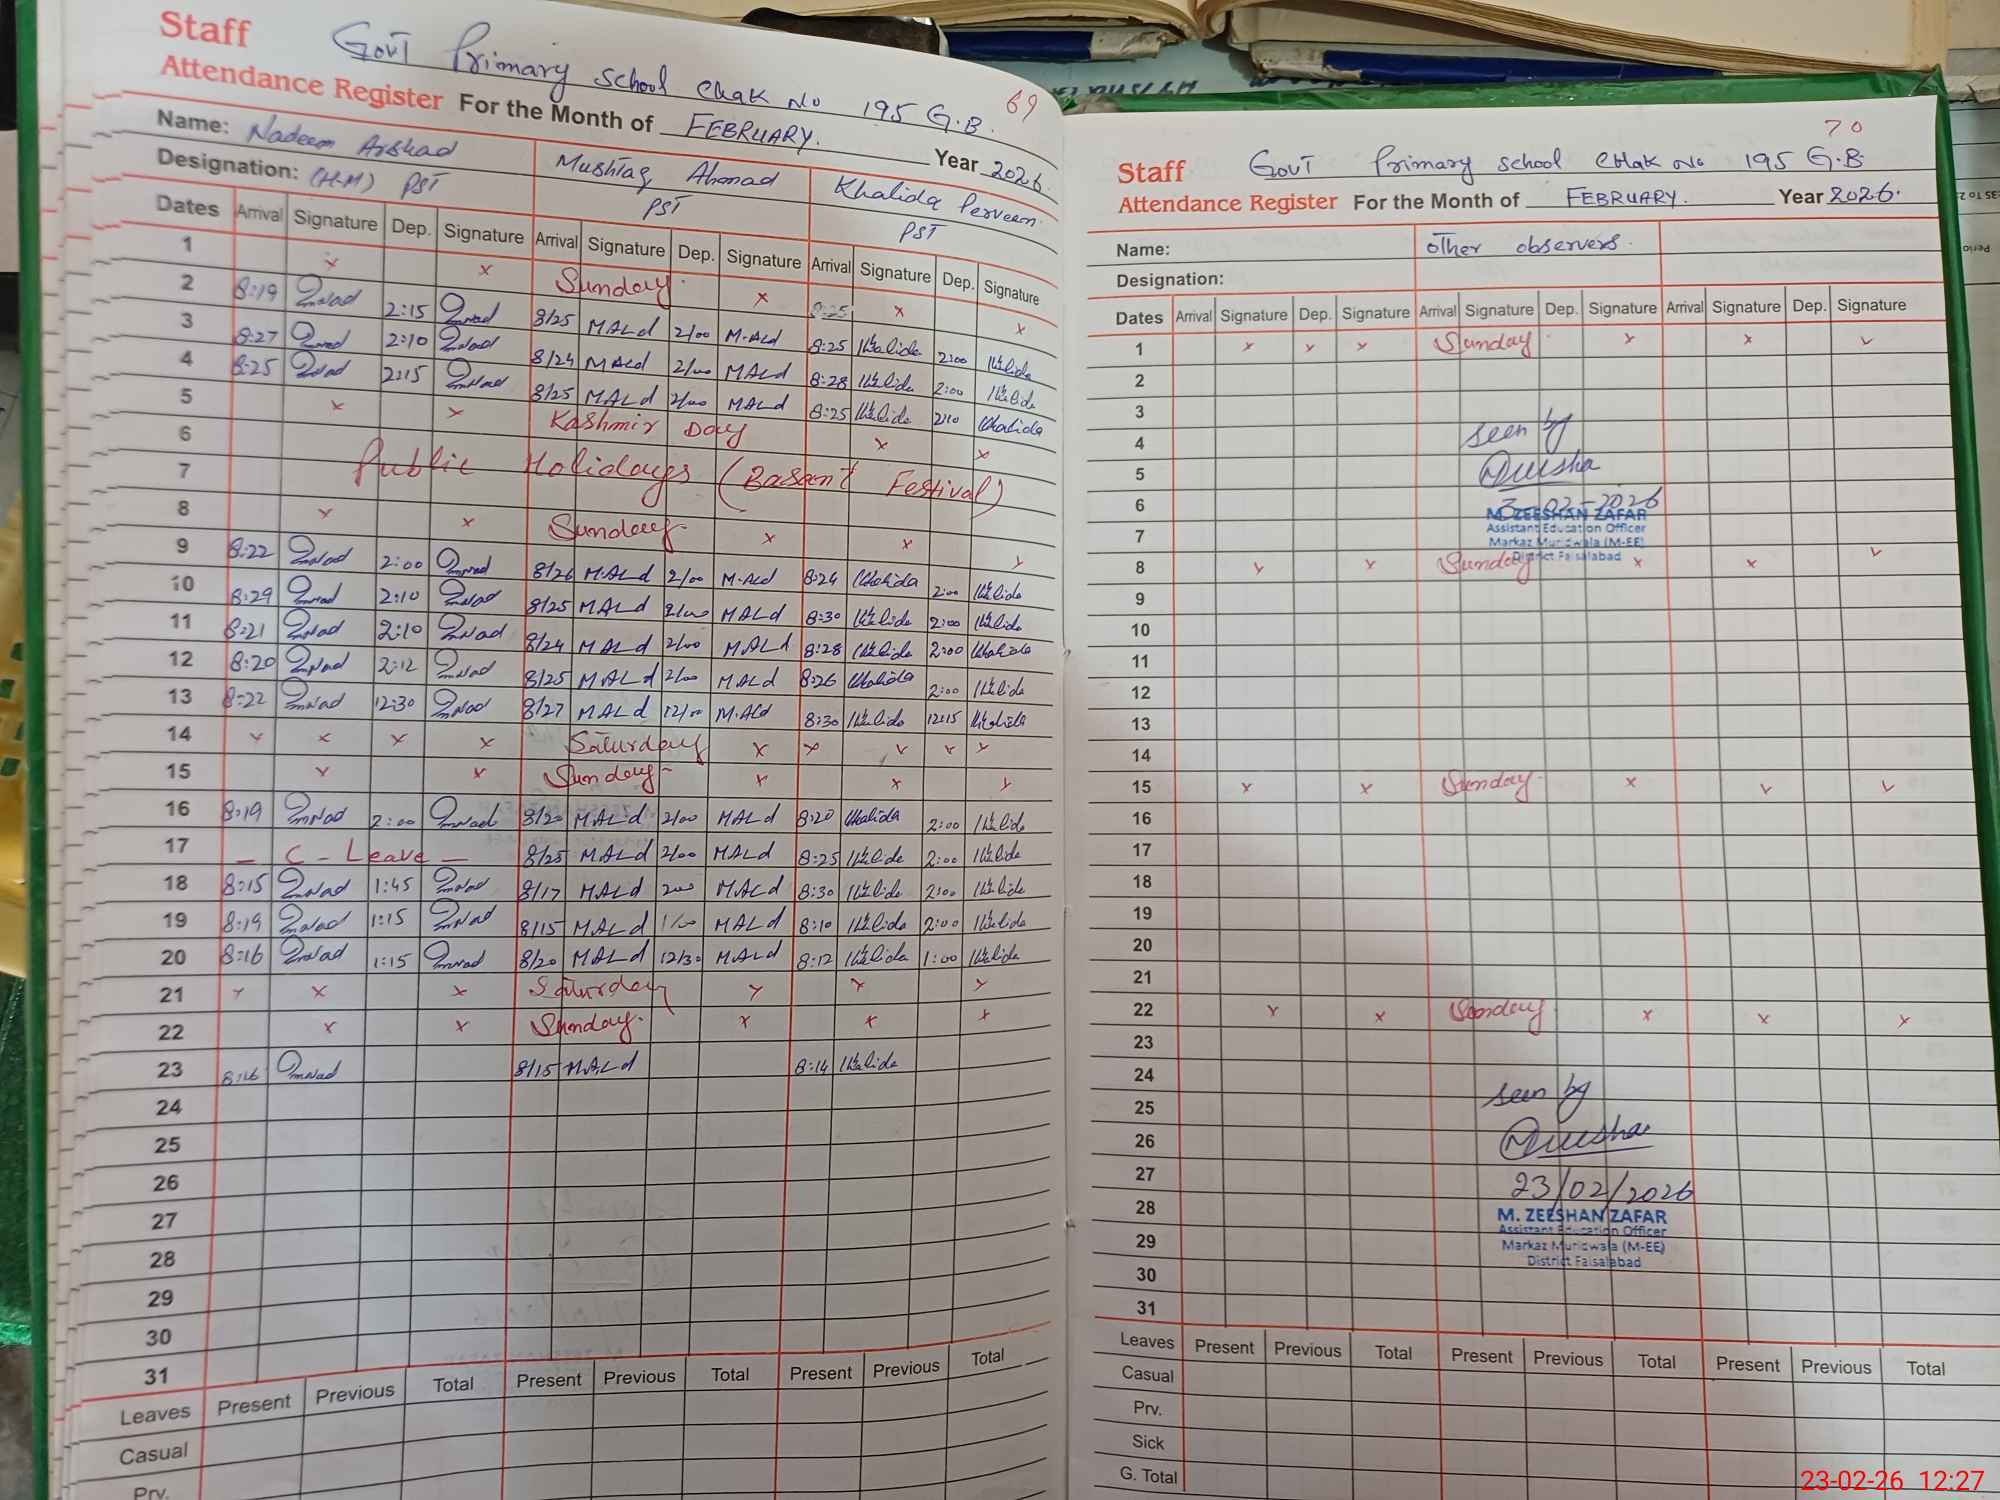 Staff Govt Primary school Chak No 195 G.B. 69
Attendance Register For the Month of FEBRUARY. Year 2026.
Name: Nadeem Arshad Mushtaq Ahmad Khalida Perveen.
Designation: (H-M) PST PST PST
Dates Arrival Signature Dep. Signature Arrival Signature Dep. Signature Arrival Signature Dep. Signature
1 x x Sunday. x x x
2 8:19 2:15 8/25 MALd 2/00 M.ALd 8:25 Khalida 2:00 Khalida
3 8:27 2:10 8/24 MALd 2/00 MALd 8:28 Khalida 2:00 Khalida
4 8:25 2:15 8/25 MALd 2/00 MALd 8:25 Khalida 2:10 Khalida
5 x x Kashmir Day x x
6
7 Public Holidays (Basant Festival)
8 x x Sunday. x x x
9 8:22 2:00 8/26 M.ALd 2/00 M.ALd 8:24 Khalida 2:00 Khalida
10 8:29 2:10 8/25 MALd 2/00 MALd 8:30 Khalida 2:00 Khalida
11 8:21 2:10 8/24 MALd 2/00 MALd 8:28 Khalida 2:00 Khalida
12 8:20 2:12 8/25 MALd 2/00 MALd 8:26 Khalida 2:00 Khalida
13 8:22 12:30 8/27 MALd 12/00 M.ALd 8:30 Khalida 12:15 Khalida
14 x x x x Saturday x x x x x
15 x x Sunday- x x x
16 8:19 2:00 8/20 MALd 2/00 MALd 8:20 Khalida 2:00 Khalida
17 - C - Leave - 8/25 MALd 2/00 MALd 8:25 Khalida 2:00 Khalida
18 8:15 1:45 8/17 MALd 2/00 MALd 8:30 Khalida 2:00 Khalida
19 8:19 1:15 8/15 MALd 1/00 MALd 8:10 Khalida 2:00 Khalida
20 8:16 1:15 8/20 MALd 12/30 MALd 8:12 Khalida 1:00 Khalida
21 x x x Saturday x x x
22 x x Sunday. x x x
23 8:16 8/15 MALd 8:14 Khalida
24
25
26
27
28
29
30
31
Leaves Present Previous Total Present Previous Total Present Previous Total
Casual
Prv.
70
Staff Govt Primary school Chak No 195 G.B
Attendance Register For the Month of FEBRUARY. Year 2026.
Name: other observers.
Designation:
Dates Arrival Signature Dep. Signature Arrival Signature Dep. Signature Arrival Signature Dep. Signature
1 x x x Sunday. x x x
2
3
4 seen by
5
6 3-02-2026
M. ZEESHAN ZAFAR
Assistant Education Officer
7 Markaz Muridwala (M-EE)
District Faisalabad
8 x x Sunday x x x
9
10
11
12
13
14
15 x x Sunday. x x x
16
17
18
19
20
21
22 x x Sunday x x x
23
24
25 seen by
26
27 23/02/2026
28 M. ZEESHAN ZAFAR
Assistant Education Officer
29 Markaz Muridwala (M-EE)
District Faisalabad
30
31
Leaves Present Previous Total Present Previous Total Present Previous Total
Casual
Prv.
Sick
G. Total
23-02-26 12:27